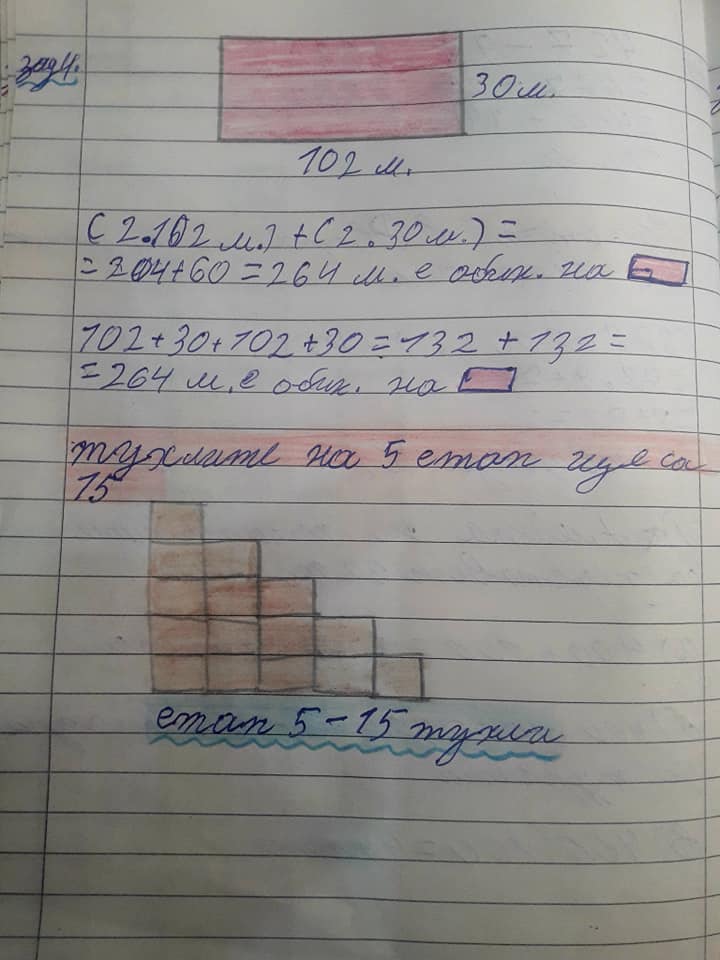 зад 4.
30 м.
102 м.
(2.102 м.) + (2.30 м.) =
= 204+60 = 264 м. е обик. на
102+30+102+30 = 132 + 132 =
= 264 м. е обик. на
тухлите на 5 етап ще са
15
етап 5 - 15 тухли